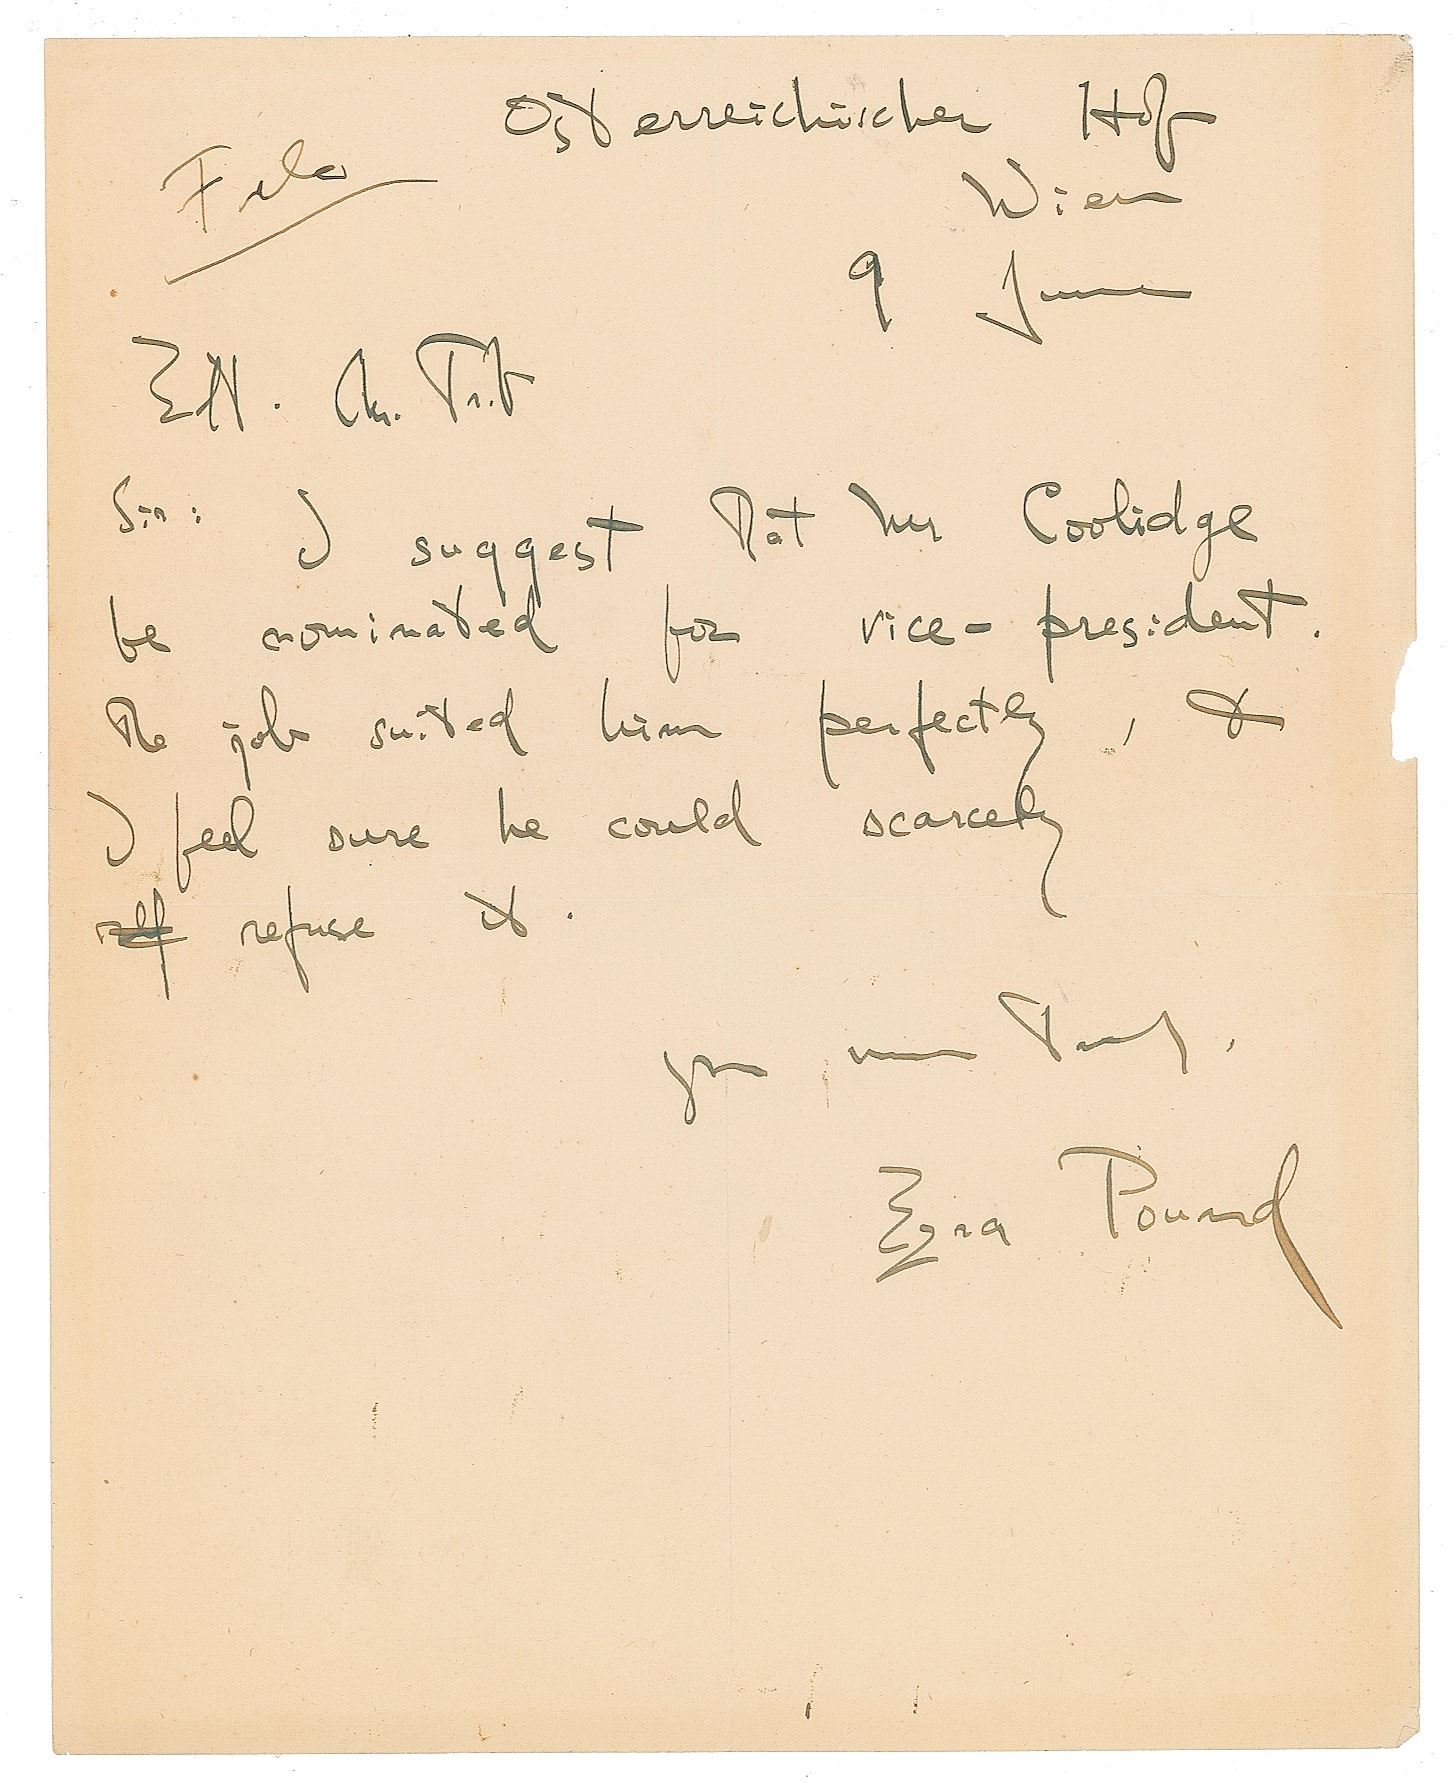 Osterreichischer Hof
File
Wien
9 June
Edt. Ch. Trib
Sir: I suggest that Mr Coolidge
be nominated for vice-president.
The job suited him perfectly, &
I feel sure he could scarcely
refuse it.
yrs very truly,
Ezra Pound